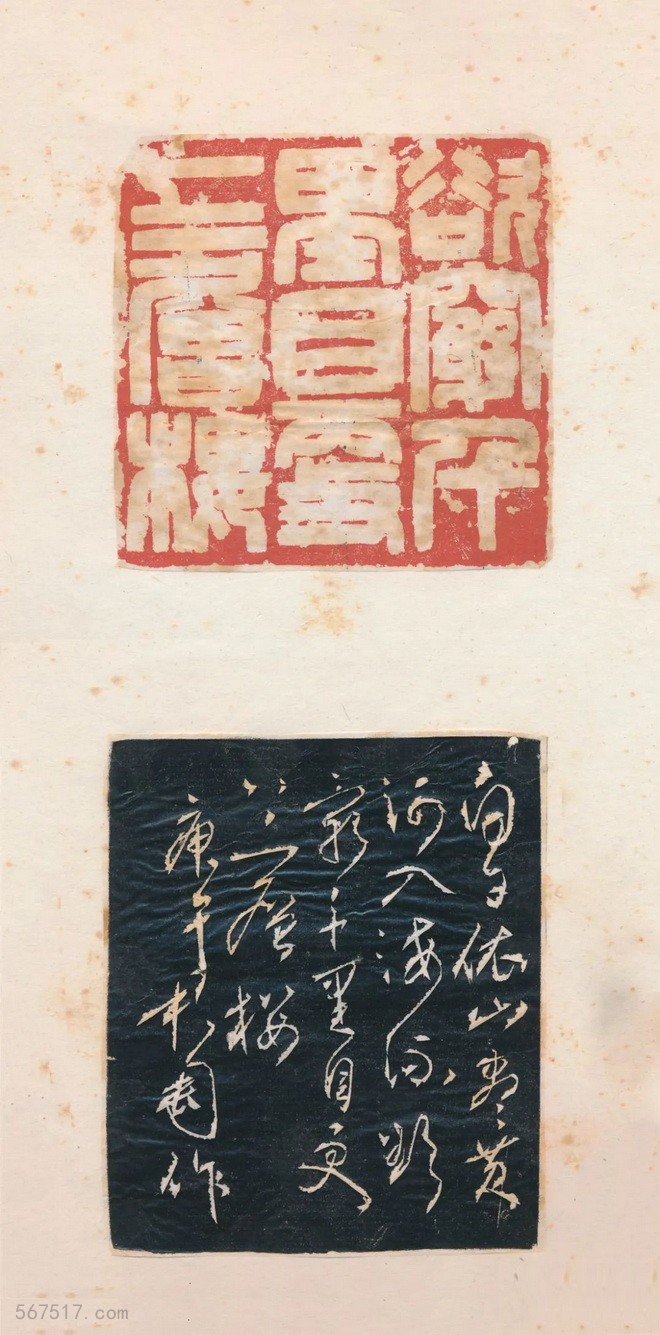 欲窮千
里目更
上一層樓
白日依山盡黃
河入海流欲
窮千里目更
上一層樓
庚午作
567517.com